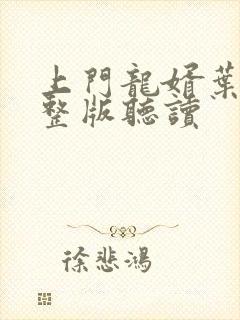 上門龍婿葉
整版聽讀
徐悲鴻